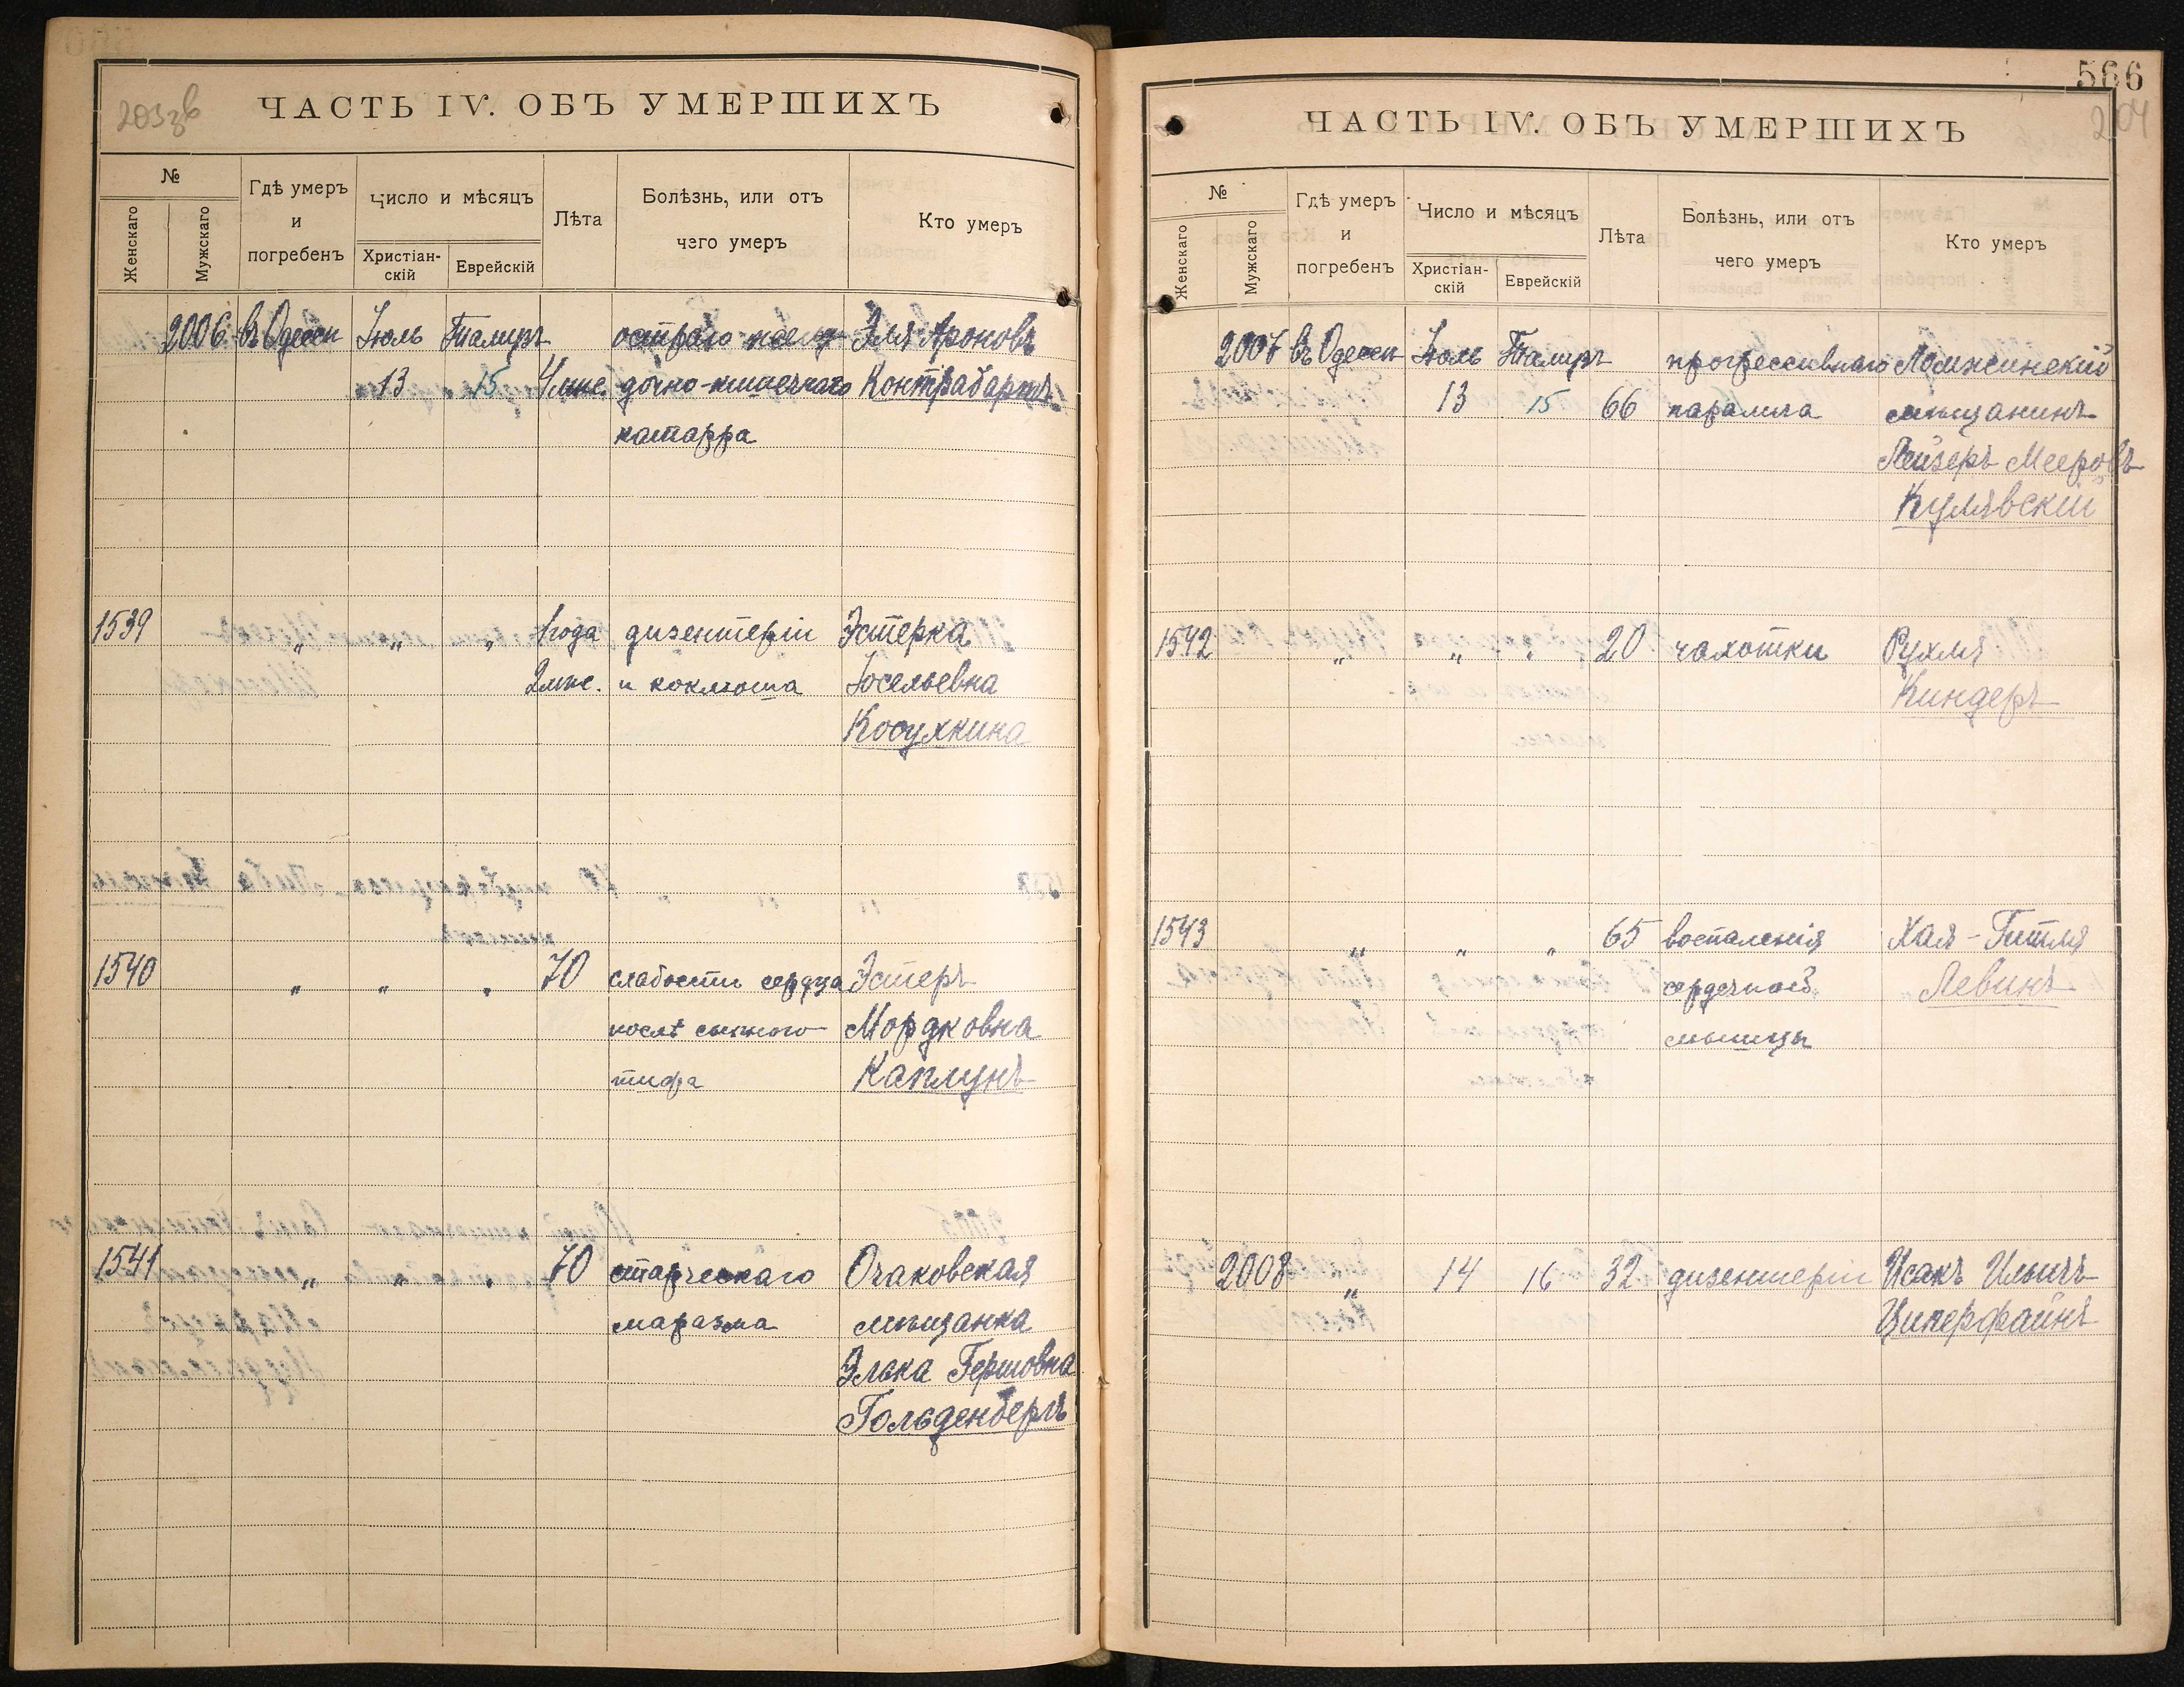 203 зв
ЧАСТЬ IV. ОБЪ УМЕРШИХЪ
№
Женскаго
Мужскаго
Гдѣ умеръ
и
погребенъ
Число и мѣсяцъ
Христіан-
скій
Еврейскій
Лѣта
Болѣзнь, или отъ
чего умеръ
Кто умеръ
2006 въ Одессѣ Іюль Тамузъ остраго желу- Эля Ароновъ
13 15 4 мѣс. дочно-кишечнаго Контрабартъ
катарра
1539 " " " 1 года дизентеріи Эстерка
2 мѣс. и коклюша Іосельевна
Косухкина
1540 " " " 70 слабости сердца Эстеръ
послѣ сыпного Мордковна
тифа Каплунъ
1541 " " " 70 старческаго Очаковская
маразма мѣщанка
Элька Гершовна
Гольденбергъ
566
204
ЧАСТЬ IV. ОБЪ УМЕРШИХЪ
№
Женскаго
Мужскаго
Гдѣ умеръ
и
погребенъ
Число и мѣсяцъ
Христіан-
скій
Еврейскій
Лѣта
Болѣзнь, или отъ
чего умеръ
Кто умеръ
2007 въ Одессѣ Іюль Тамузъ прогрессивнаго Ломжинскій
13 15 66 паралича мѣщанинъ
Лейзеръ Мееровъ
Кулявскій
1542 " " " 20 чахотки Рухля
Киндеръ
1543 " " " 65 воспаленія Хая-Гитля
сердечной Левинъ
мышцы
2008 " 14 16 32 дизентеріи Исакъ Ильичъ
Циперфайнъ